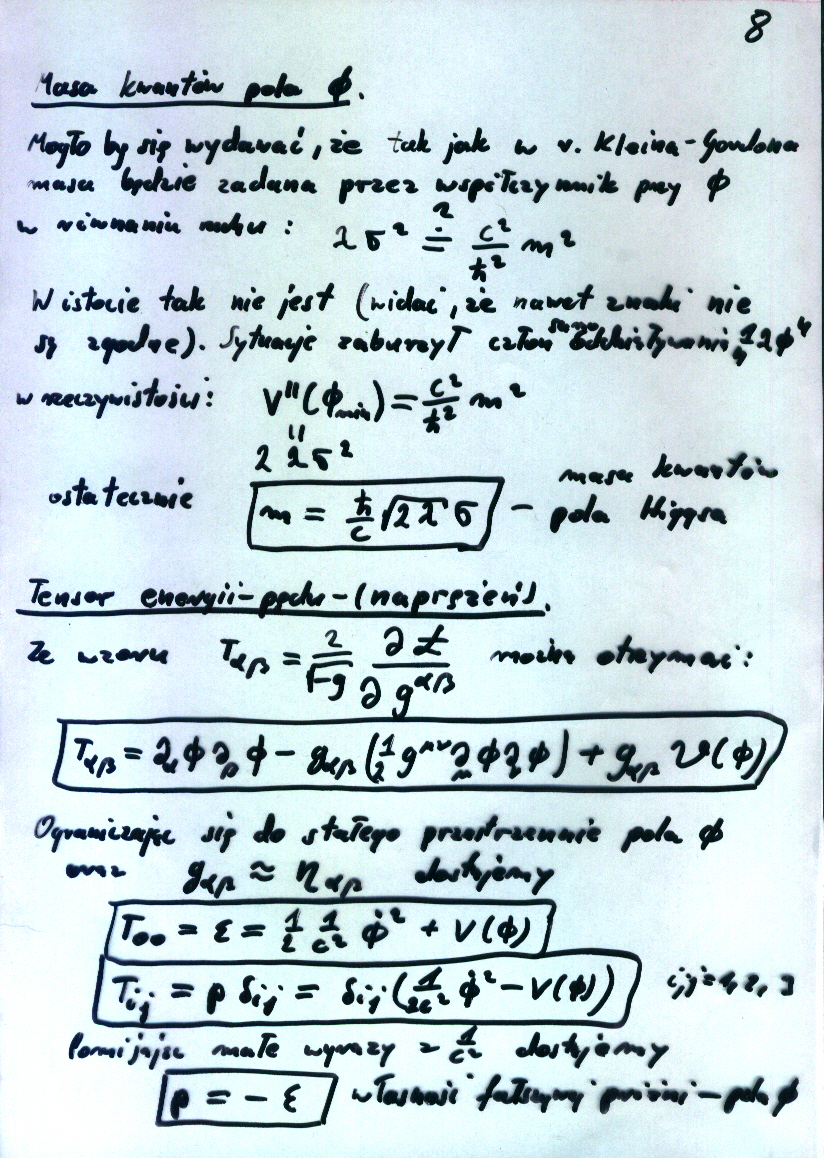 8
Masa kwantów pola ϕ.
Mogło by się wydawać, że tak jak w r. Kleina-Gordona
masa będzie zadana przez współczynnik przy ϕ
w równaniu ruchu : λ σ² ≟ c²/ħ² m²
W istocie tak nie jest (widać, że nawet znaki nie
są zgodne). Sytuację zaburzył człon 1/4 λ ϕ⁴
w rzeczywistości: V''(ϕ_min) = c²/ħ² m²
=
2 λ σ²
ostatecznie m = ħ/c √2λ σ – masa kwantów
pola Higgsa
Tensor energii-pędu-(naprężeń).
Ze wzoru T_αβ = 2/√-g ∂ℒ/∂g^αβ można otrzymać :
T_αβ = ∂_α ϕ ∂_β ϕ – g_αβ (1/2 g^μν ∂_μ ϕ ∂_ν ϕ) + g_αβ V(ϕ)
Ograniczając się do stałego przestrzennie pola ϕ
oraz g_αβ ≈ η_αβ dostajemy
T_00 = ε = 1/2 1/c² ϕ̇² + V(ϕ)
T_ij = p δ_ij = δ_ij (1/2c² ϕ̇² – V(ϕ)) i,j = 1, 2, 3
Pomijając małe wyrazy z 1/c² dostajemy
p = – ε własność fałszywej próżni – pola ϕ